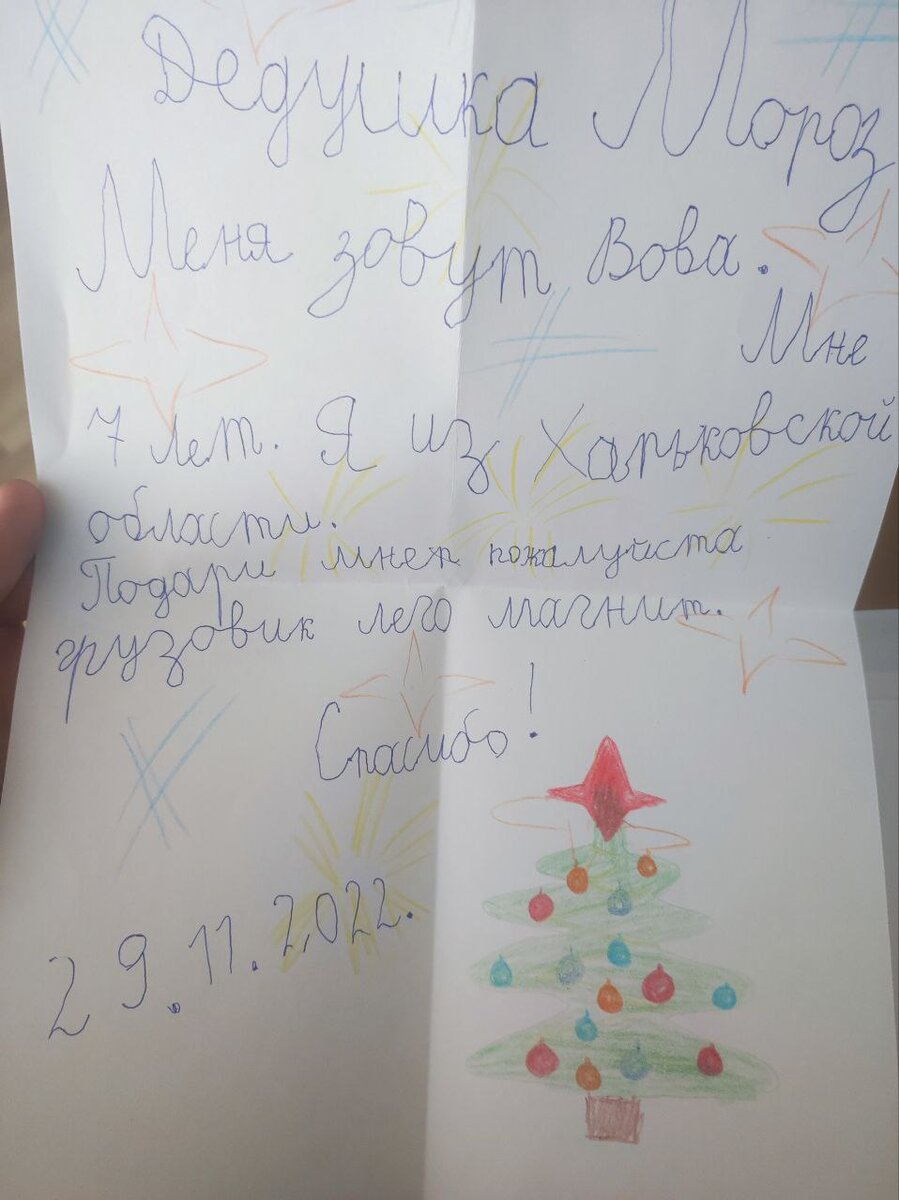 Дедушка Мороз
Меня зовут Вова.
Мне
7 лет. Я из Харьковской
области.
Подари мнеп пожалуйста
грузовик лего магнит.
Спасибо!
29.11.2022.